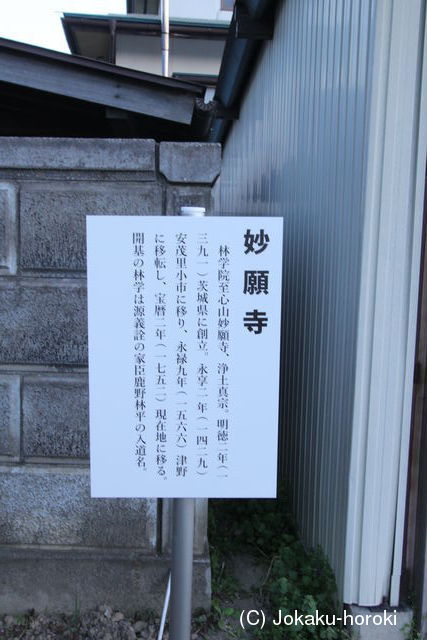 妙願寺
林学院至心山妙願寺、浄土真宗。明徳二年(一
三九一)茨城県に創立。永享二年(一四二九)
安茂里小市に移り、永禄九年(一五六六)津野
に移転し、宝暦二年(一七五二)現在地に移る。
開基の林学は源義詮の家臣鹿野林平の入道名。
(C) Jokaku-horoki